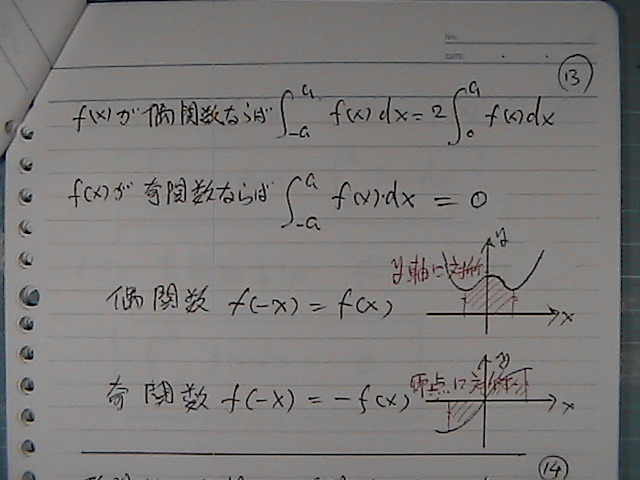 No.
DATE
⑬
f(x)が偶関数ならば ∫_{-a}^{a} f(x)dx = 2∫_{0}^{a} f(x)dx
f(x)が奇関数ならば ∫_{-a}^{a} f(x)dx = 0
y
y軸に対称
偶関数 f(-x) = f(x)
x
y
原点に対称
奇関数 f(-x) = -f(x)
x
⑭